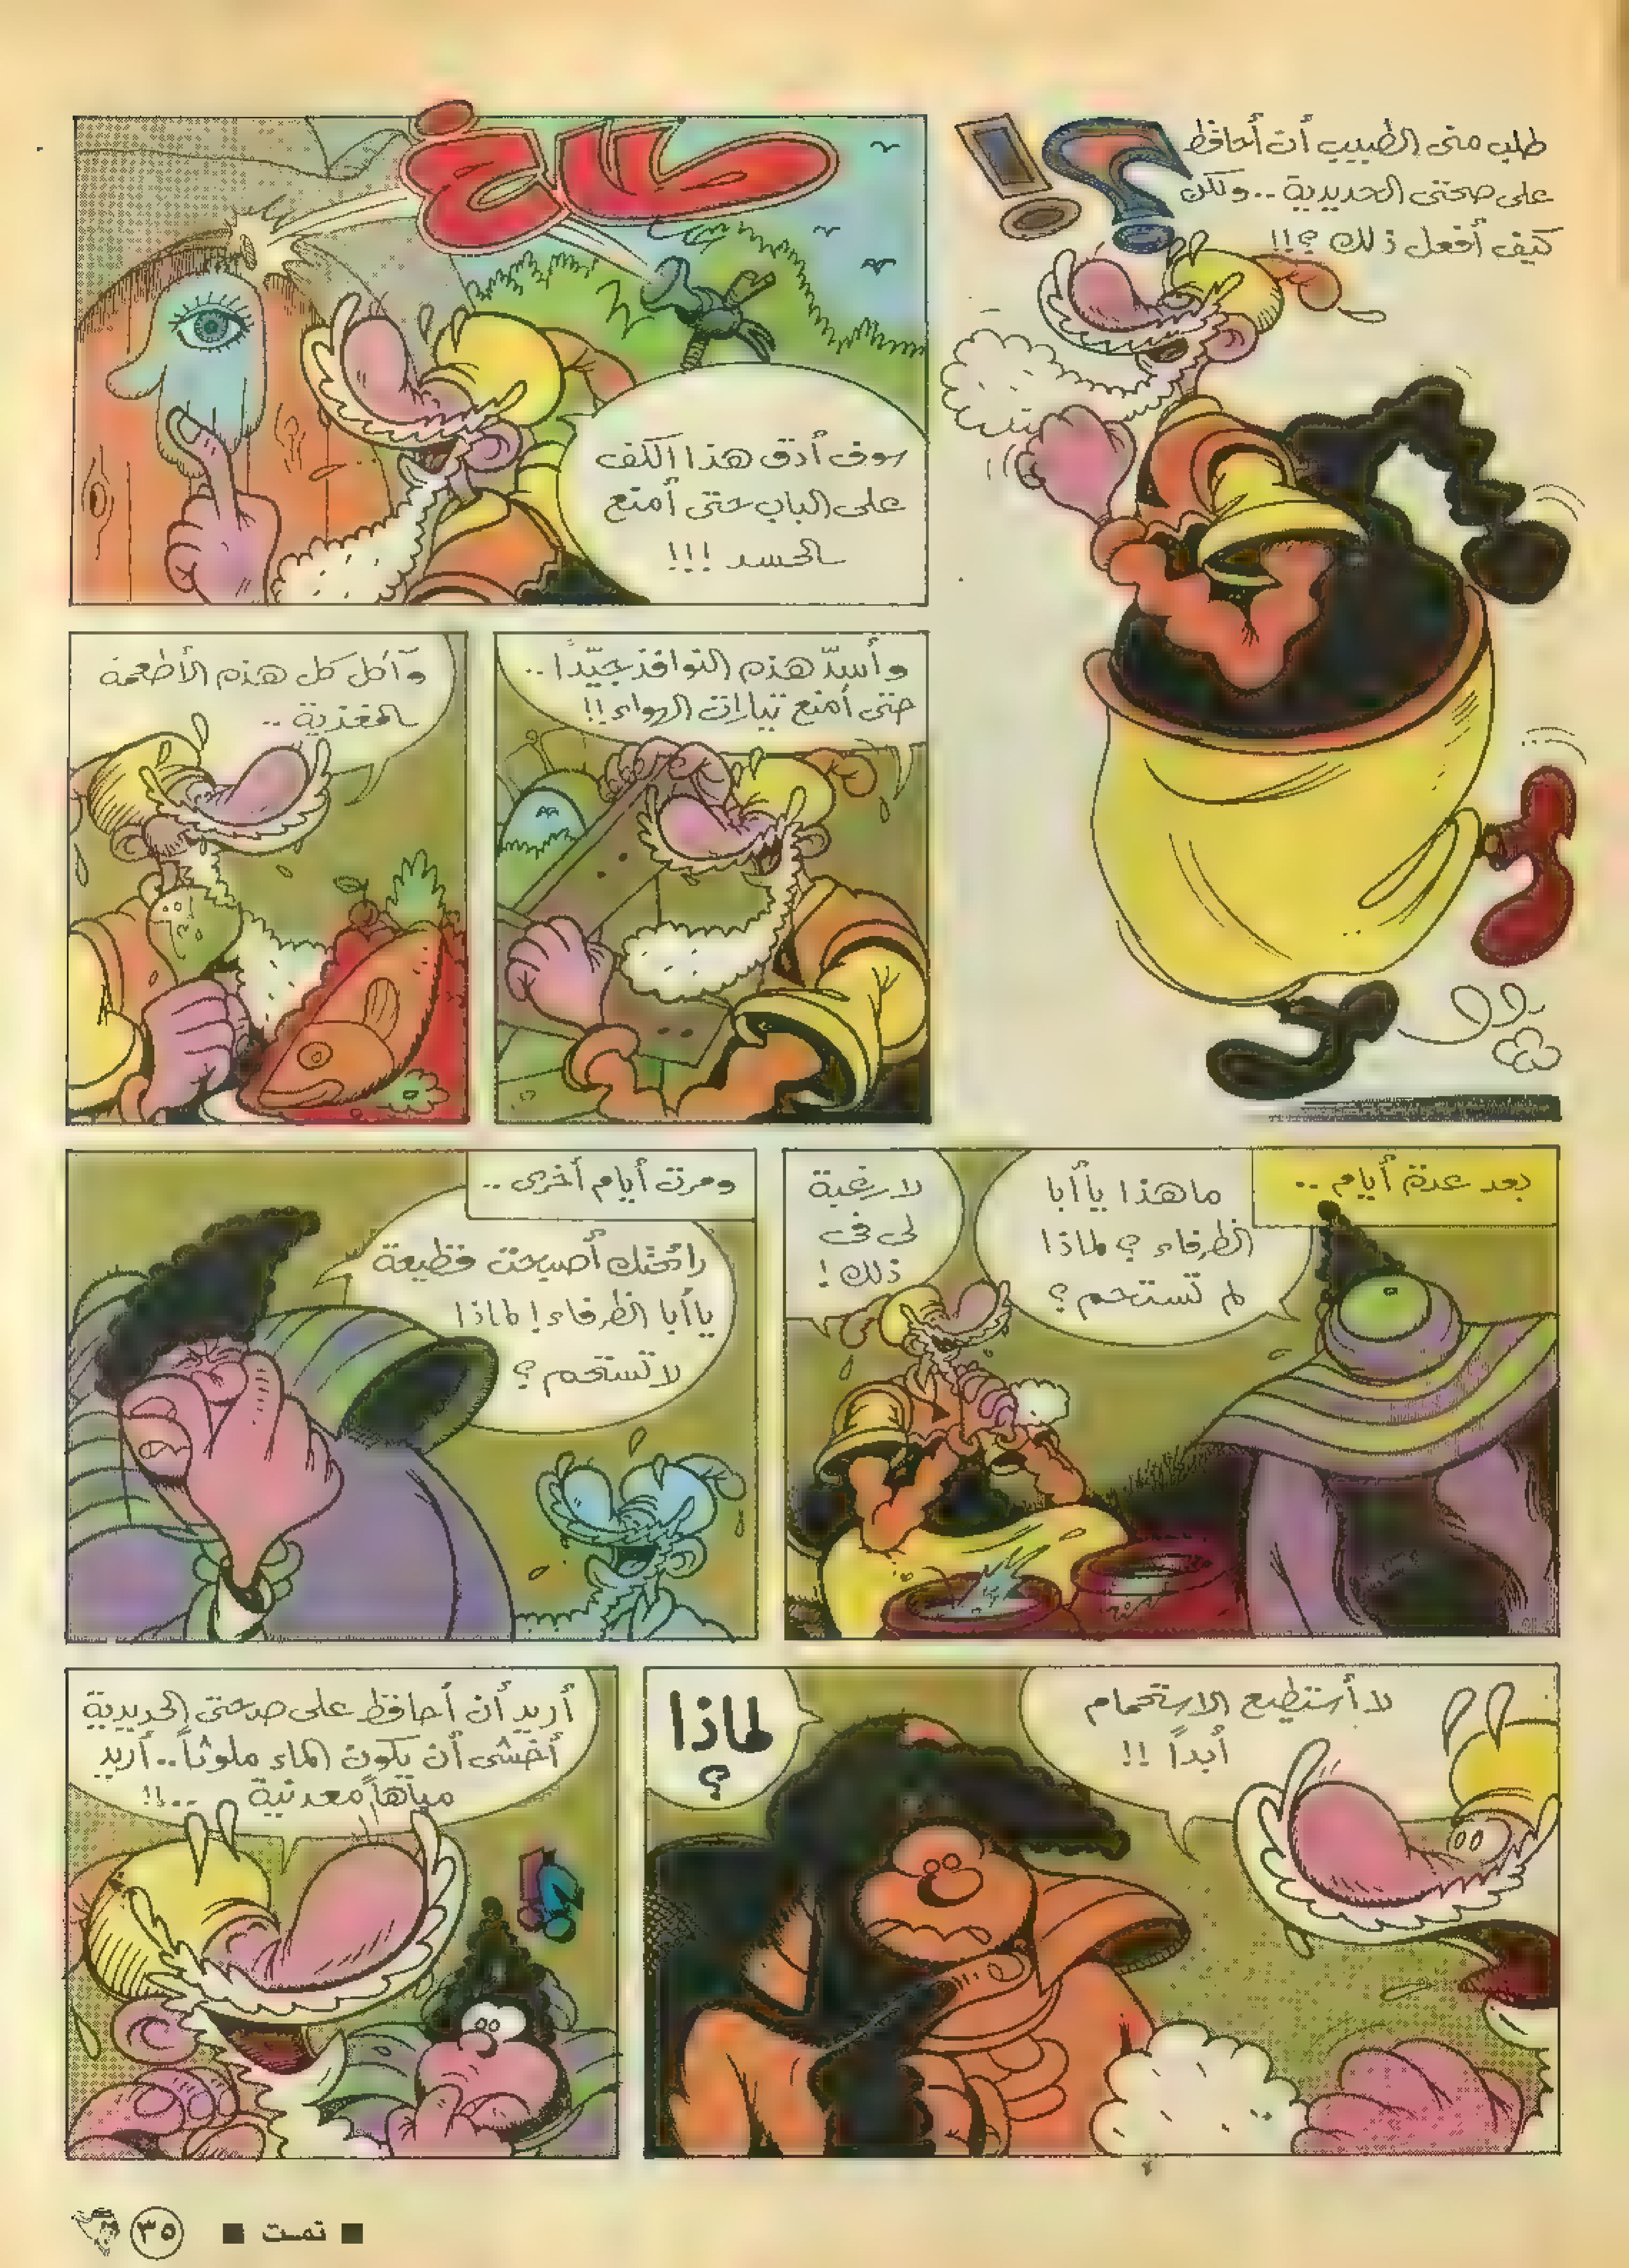 طلب منى الطبيب أن أحافظ
على صحتى الحديدية .. ولكن
كيف أفعل ذلك ؟!!
؟!
طاخ
سوف أدق هذا الكف
على الباب حتى أمنع
الحسد !!!
وأسدّ هذه النوافذ جيّدًا ..
حتى أمنع تيارات الهواء !!
وآكل كل هذه الأطعمة
المغذية ..
بعد عدة أيام ..
ما هذا يا أبا
الظرفاء ؟ لماذا
لم تستحم ؟
لا رغبة
لى فى
ذلك !
ومرت أيام أخرى ..
رائحتك أصبحت فظيعة
يا أبا الظرفاء ! لماذا
لا تستحم ؟
لا أستطيع الاستحمام
أبداً !!
لماذا
؟
أريد أن أحافظ على صحتى الحديدية
أخشى أن يكون الماء ملوثاً .. أريد
مياهاً معدنية ..!!
؟!
■ تمـت ■
٣٥